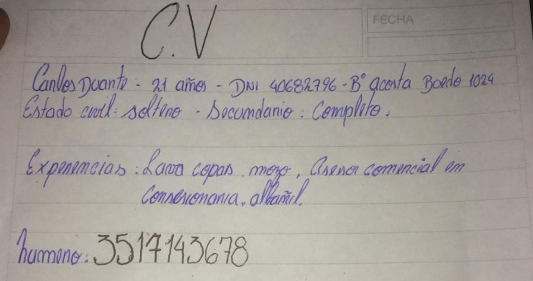 C.V
FECHA
Carlos Duarte - 21 años - DNI 40682796 - Bº acosta Boedo 1024
Estado civil: soltero - Secundario: Completo.
Experiencias: Lava copas, mozo, Asesor comercial en
Consesionaria, albañil.
numero: 3517143678